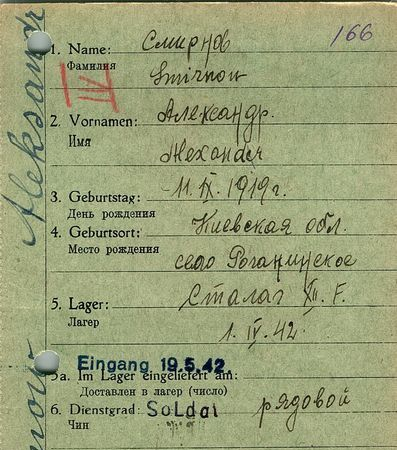 166
1. Name: Смирнов
Фамилия
Smirnow
IV
2. Vornamen: Александр.
Имя
3. Geburtstag: 11. IX. 1919 г.
День рождения
4. Geburtsort: Киевская обл.
Место рождения
село
5. Lager: Сталаг XII. F.
Лагерь
1. IV. 42.
Eingang 19.5.42.
5a. Im Lager eingeliefert am:
Доставлен в лагерь (число)
6. Dienstgrad: Soldat рядовой
Чин
Aleksandr